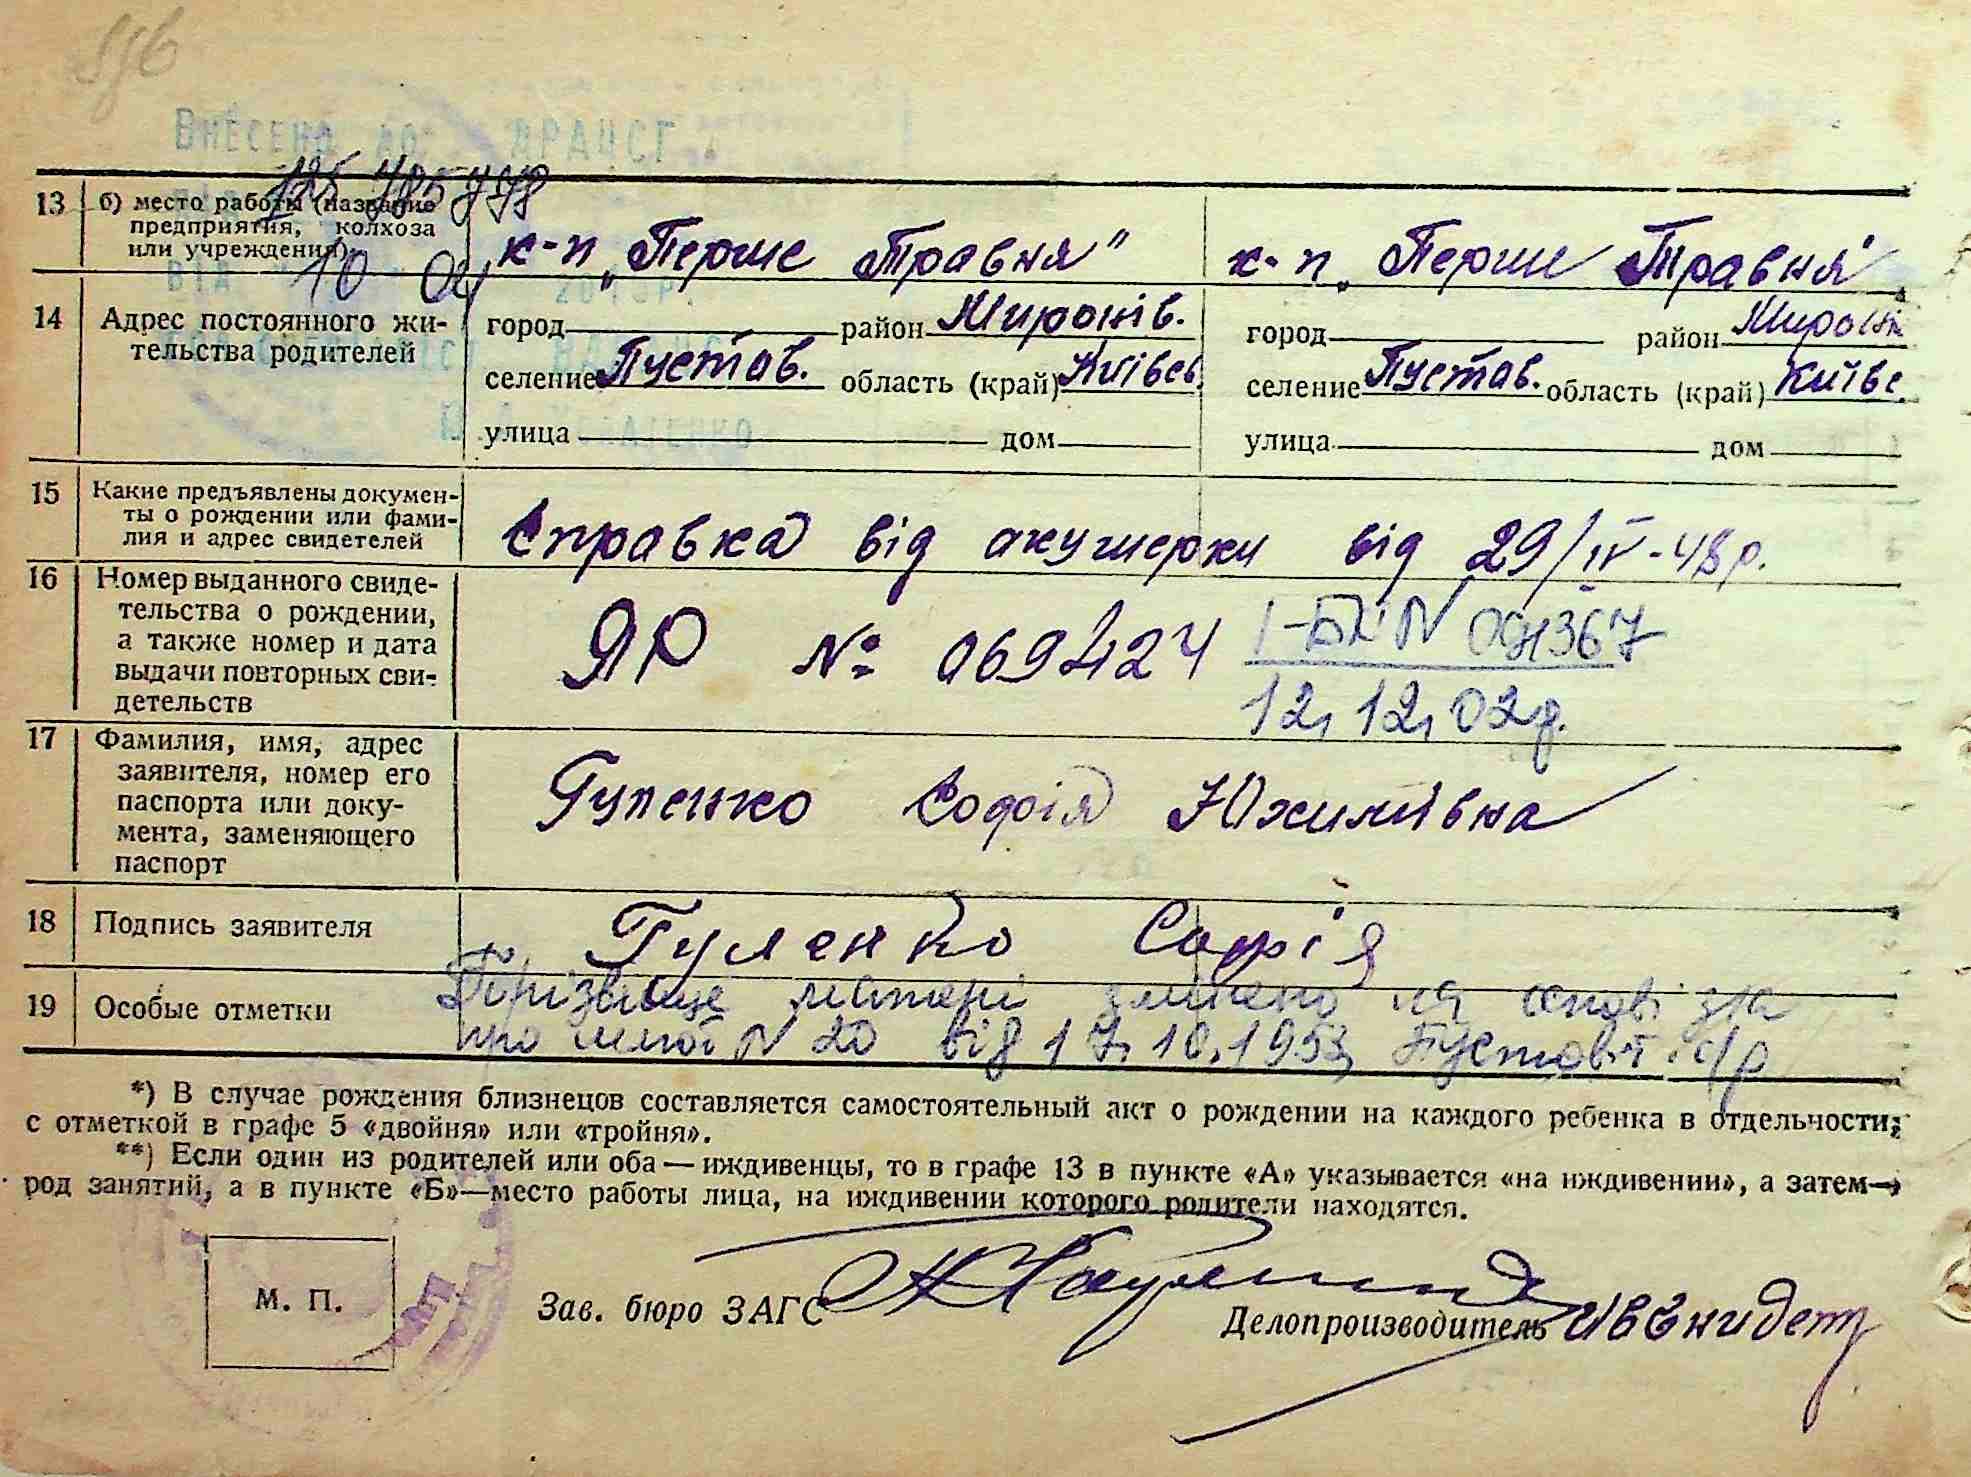 556
ВНЕСЕНО ДО ДРАЦСГ
13 б) место работы (название предприятия, колхоза или учреждения)
к-п „Перше Травня"
к-п „Перше Травня"
14 Адрес постоянного жительства родителей
город район Миронів.
селение Пустав. область (край) Київсь.
улица дом
город район Миронів
селение Пустав. область (край) Київс.
улица дом
15 Какие предъявлены документы о рождении или фамилия и адрес свидетелей
Справка від акушерки від 29/IV-48р.
16 Номер выданного свидетельства о рождении, а также номер и дата выдачи повторных свидетельств
ЯР № 069424
12.12.02р.
17 Фамилия, имя, адрес заявителя, номер его паспорта или документа, заменяющего паспорт
Гуленко Софія Юхимівна
18 Подпись заявителя
Гуленко Софія
19 Особые отметки
Прізвище матері змінено на
про шлюб N 20 від 17.10.1953 Пустовіт. с/р
*) В случае рождения близнецов составляется самостоятельный акт о рождении на каждого ребенка в отдельности;
с отметкой в графе 5 «двойня» или «тройня».
**) Если один из родителей или оба — иждивенцы, то в графе 13 в пункте «А» указывается «на иждивении», а затем—
род занятий, а в пункте «Б»—место работы лица, на иждивении которого родители находятся.
М. П.
Зав. бюро ЗАГС
Делопроизводитель